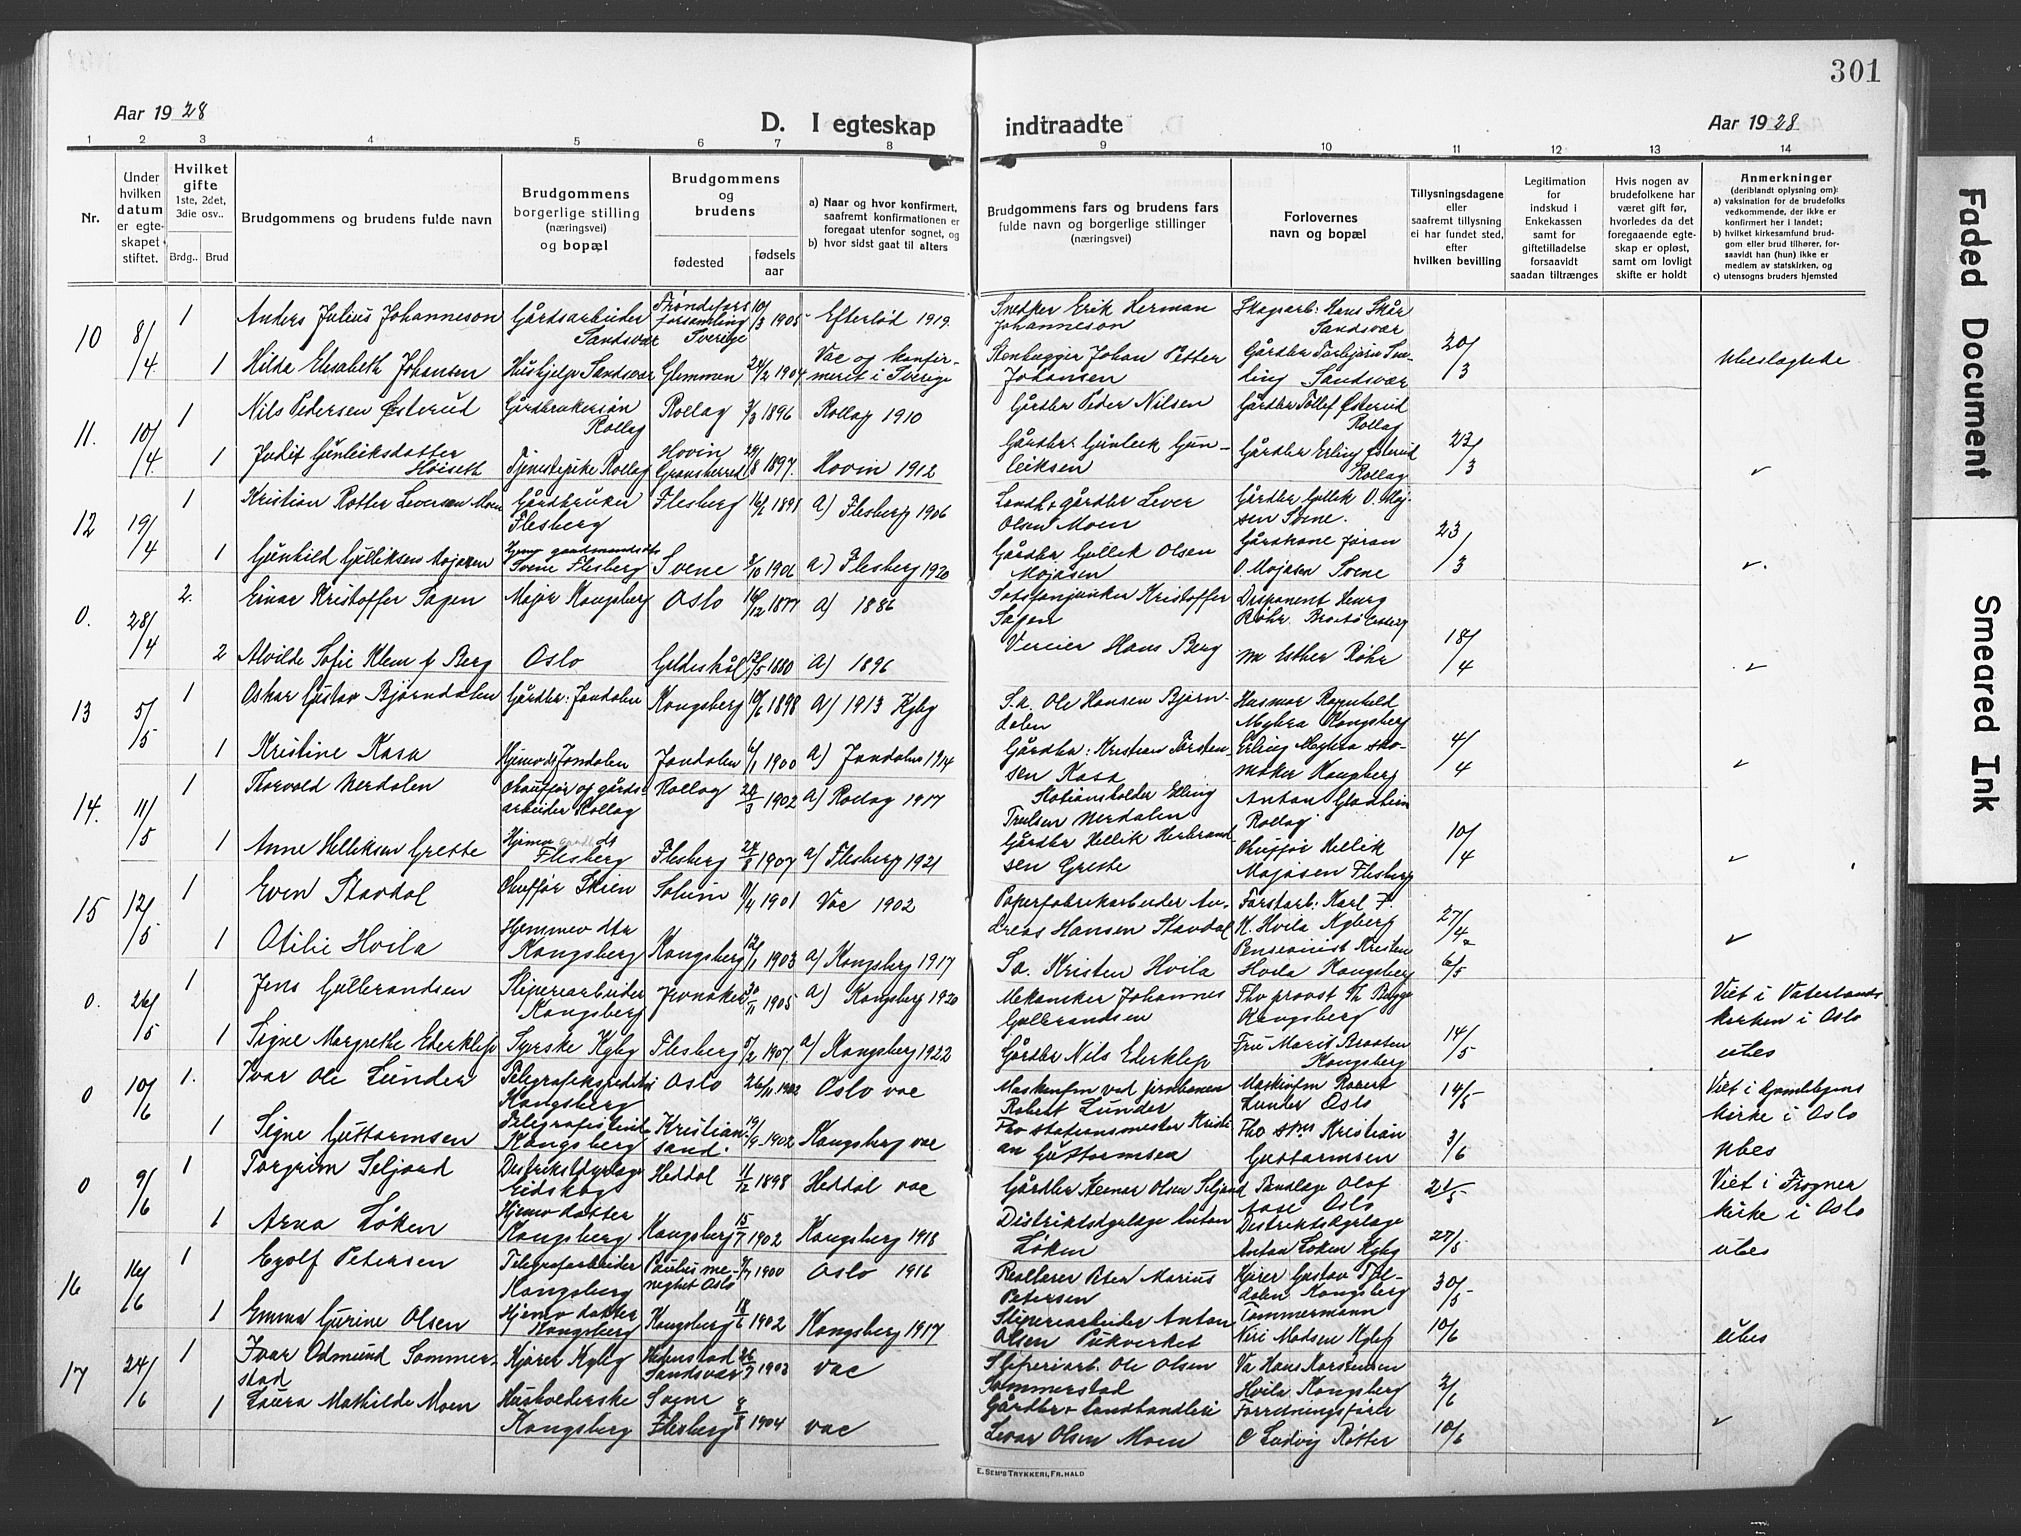 301
Aar 1928
D. I egteskap
indtraadte
Aar 1928
1 2 3 4 5 6 7 8 9 10 11 12 13 14
Nr.
Under
hvilken
datum
er egte-
skapet
stiftet.
Hvilket
gifte
1ste, 2det,
3die osv..
Brdg.. Brud
Brudgommens og brudens fulde navn
Brudgommens
borgerlige stilling
(næringsvei)
og bopæl
Brudgommens
og
brudens
fødested
fødsels
aar
a) Naar og hvor konfirmert,
saafremt konfirmationen er
foregaat utenfor sognet, og
b) hvor sidst gaat til alters
Brudgommens fars og brudens fars
fulde navn og borgerlige stillinger
(næringsvei)
Forlovernes
navn og bopæl
Tillysningsdagene
eller
saafremt tillysning
ei har fundet sted,
efter
hvilken bevilling
Legitimation
for
indskud i
Enkekassen
samt for
giftetilladelse
forsaavidt
saadan tiltrænges
Hvis nogen av
brudefolkene har
været gift før,
hvorledes da det
foregaaende egte-
skap er opløst,
samt om lovligt
skifte er holdt
Anmerkninger
(deriblandt oplysning om):
a) vaksination for de brudefolks
vedkommende, der ikke er
konfirmert her i landet;
b) hvilket kirkesamfund brud-
gom eller brud tilhører, for-
saavidt han (hun) ikke er
medlem av statskirken, og
c) utensogns bruders hjemsted
10 8/4 1 Anders Julius Johanneson Gårdsarbeider Sandsvær Sverige 10/3 1905 Efteløt 1919. Snedker Erik Herman Johanneson Skogsarb: Hans Skår Sandsvær
1 Hilda Elisabeth Johansen Hushjelp Sandsvær Glemmen 24/2 1904 Vac og konfirmert i Sverige Stenhugger Johan Petter Johansen Gårdbr Torbjørn Sandsvær 20/3 Ubeslægtede
11. 10/4 1 Nils Pedersen Østerud Gårdbrukersøn Rollag Rollag 1896 Rollag 1910 Gårdbr Peder Nilsen Gårdbr Tollef Østerud Rollag
1 Judit Gunleiksdatter Høiseth Tjenestepike Rollag Hovin Gransherred 29/8 1897. Hovin 1912 Gårdbr: Gunleik Gunleiksen Gårdbr Erling Østerud Rollag 27/3
12 19/4 1 Kristian Rotter Leversen Moen Gårdbruker Flesberg Flesberg a) Flesberg 1906 Landh. & gårdbr Lever Olsen Moen Gårdbr Gullik O. Mojasen Svene.
1 Gunhild Gulliksen Mojasen Svene Flesberg Svene 1906 a) Flesberg 1920 Gårdbr Gullik Olsen Mojasen Gårdkone Jøran O. Mojasen Svene 23/3
0. 28/4 2. Einar Kristoffer Sagen Major Kongsberg Oslo 16/12 1877 a) 1886 Kristoffer Sagen Disponent Henry Røhr
2 Alvilde Sofie Klem f Berg Oslo Gildeskål 12/5 1880 a) 1896 Hans Berg m Esther Røhr 18/4
13 5/5 1 Oskar Gustav Bjørndalen Gårdbr: Jondalen Kongsberg 1898 a) 1913 Kgbg S.a. Ole Hansen Bjørndalen Husmor Ragnhild Myhra Kongsberg
1 Kristine Kasa Jondalen Jondalen 6/1 1900 a) Jondalen 1914 Gårdbr: Kristian Torstensen Kasa Erling Myhra skomaker Kongsberg 4/4
14. 11/5 1 Thorvald Nerdalen Chauffør og gårdsarbeider Rollag Rollag 1902 a) Rollag 1917 Stationsholder Elling Truelsen Nerdalen Anton Gladheim Rollag
1 Anne Helliksen Grette Flesberg Flesberg 1907 a) Flesberg 1921 Gårdbr Hellik Herbrandsen Grette Chuffør Hellik Mojasen Flesberg 10/4
15 12/5 1 Even Stavdal Chuffør Skien Solum 1901 Vac 1902 Paperfabrikarbeider Andreas Hansen Stavdal Karl F. K. Hvila Kgberg 27/4
1 Otilie Hvila Hjemmev dtr Kongsberg Kongsberg 12/1 1903 a) Kongsberg 1917 Sa. Kristen Hvila Pensionist Kristen Hvila Kongsberg 6/5
0. 26/5 1 Jens Gulbrandsen Sliperiarbeider Kongsberg Jevnaker 30/11 1905 a) Kongsberg 1920 Mekaniker Johannes Gulbrandsen Fhv provst Th Bugge Kongsberg Viet i Vaterlandskirken i Oslo
1 Signe Margrethe Ederklep Syerske Kgbg Flesberg 1907 a) Kongsberg 1922 Gårdbr Nils Ederklep Fru Marit Braaten Kongsberg 14/5 ubes
0 10/6 1. Ivar Ole Lunder Kongsberg Oslo 26/11 1902 Oslo vac Maskinfm ved jernbanen Robert Lunder Maskinfm Robert Lunder Oslo 14/5 Viet i Gamlebyens kirke i Oslo
1 Signe Guttormsen Kongsberg Kristiansand. 19/9 1902 Kongsberg vac Fhv stationsmester Kristian Guttormsen Kristian Guttormsen 3/6 Ubes
0 9/6 1 Torgrim Seljord Distriktsdyrlæge Eidskog Heddal 11/12 1898 Heddal vac Gårdbr Steinar Olsen Seljord Tandlæge Olof Aase Oslo 21/5 Viet i Frogner kirke i Oslo
1 Arna Løken Hjemv datter Kongsberg Kongsberg 15/7 1902 Kongsberg 1918 Distriktsdyrlæge Anton Løken Distriktsdyrlæge Anton Løken Kgbg 27/5 ubes
16 16/6 1 Egolf Petersen Telegrafarbeider Kongsberg Paulus menighet Oslo 1900 Oslo 1916 Peter Marius Petersen Kjører Gustav Kongsberg 30/5
1 Emma Gurine Olsen Hjemv datter Kongsberg Kongsberg 18/6 1902 Kongsberg 1917 Sliperiarbeider Anton Olsen Pukverket Tømmermann Madsen Kgbg 10/6 Ubes
17 24/6 1 Ivar Odmund Sommerstad Kjører Kgbg Sandsvær 1903 vac Sliperiarb. Ole Olsen Sommerstad Hans Karstensen Hvila Kongsberg 2/6
1 Laura Mathilde Moen Husholderske Kongsberg Flesberg 8/8 1904 vac Gårdbr & landhandleri Levor Olsen Moen Forretningsfører O Ludvig Rotter 10/6
E. SEM'S TRYKKERI, FR. HALD
Faded Document
Smeared Ink